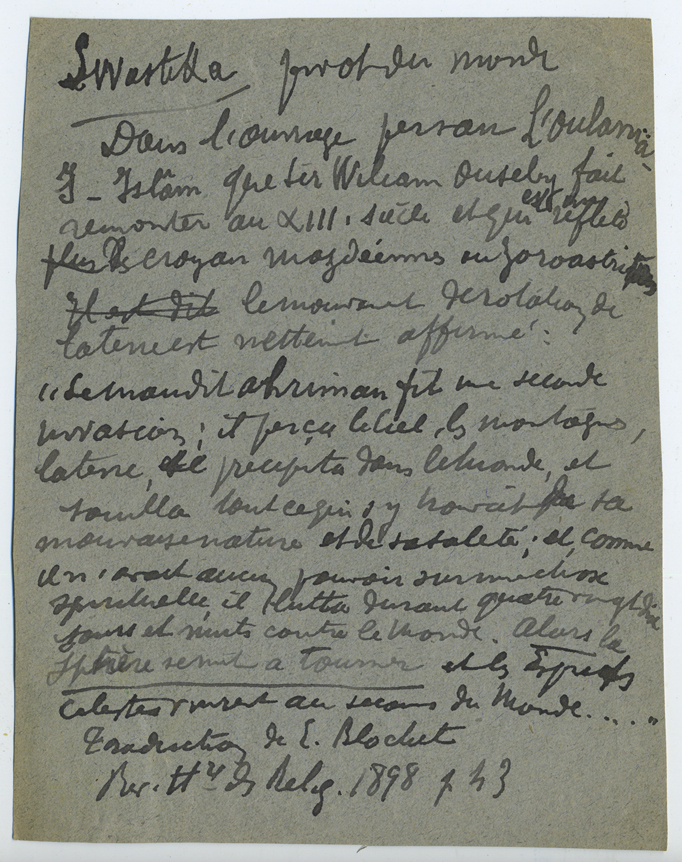 Swastika pivot du monde
Dans l'ouvrage persan L'oulamâ-
I-Islâm que Sir William Ouseley fait
remonter au XIII. siècle et qui est un reflet
plus des croyan mazdéennes ou zoroastri
Il est dit le mouvement de rotation de
la terre est nettement affirmé :
"Le maudit Ahriman fit une seconde
invasion ; il perça le ciel, les montagnes,
la terre, se précipita dans le monde, et
souilla tout ce qui s'y trouvait de sa
mauvaise nature et de sa saleté ; et, comme
il n'avait aucun pouvoir sur une chose
spirituelle, il lutta durant quatre vingt dix
jours et nuits contre le Monde. Alors la
sphère se mit à tourner et les Esprits
célestes vinrent au secours du Monde....."
Traduction de E. Blochet
Rev. Hre des Relig. 1898 p 43